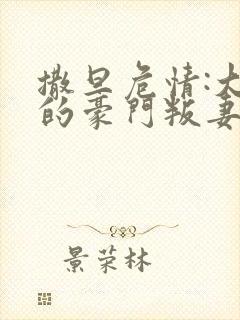 撒旦危情:
的豪門叛妻
景荣林